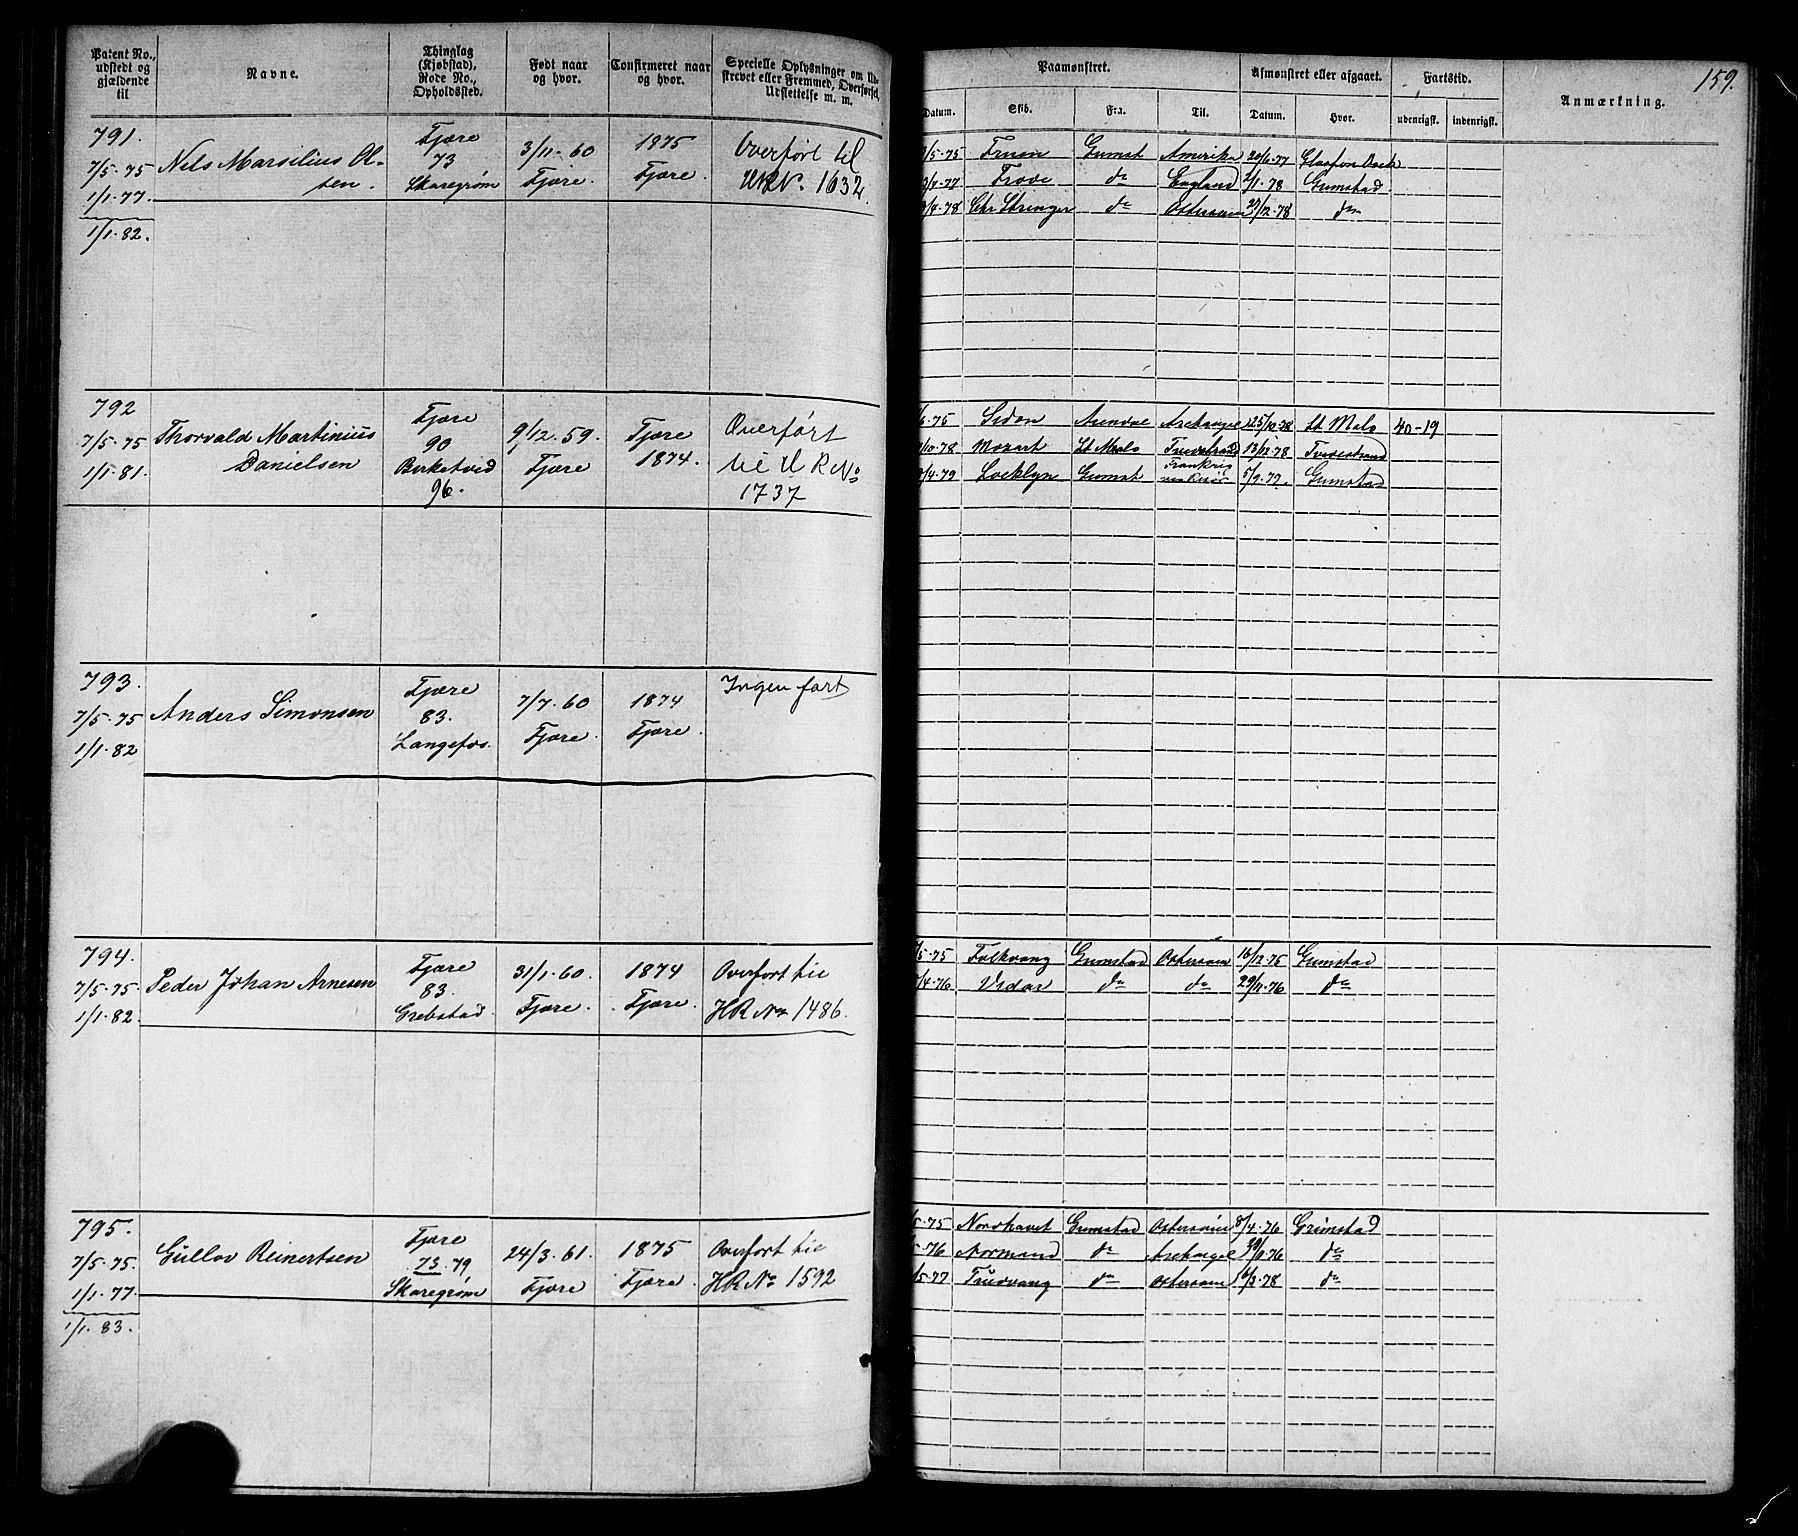 159.
Patent No., udstedt og gjældende til
Navne.
Thinglag (Kjøbstad). Rode No., Opholdssted.
Født naar og hvor.
Confirmeret naar og hvor.
Specielle Oplysninger om Ud-
skrevet eller Fremmed, Overførsel,
Udslettelse m. m.
Paamønstret.
Afmønstret eller afgaaet.
Fartstid.
Anmærkning.
Datum. Skib. Fra. Til. Datum. Hvor. udenrigsk. indenrigsk.
791.
7/5-75
1/1-77.
1/1-82.
Nils Marsilius Ol-
sen.
Fjære
73
Skaregrøm
3/11-60
Fjære.
1875
Fjære.
Overført til
1632
/5-75 Gumst Amerika 20/6-77
/7-77 Trove do England 2/1-78 Grimstad
/4-78 Chr Stringer do Østersøen 27/12-78 do
792
7/5-75
1/1-81.
Thorvald Martinius
Danielsen
Fjære
90
Birketved
96.
9/12-59.
Fjære
Fjære
1874.
Overført
til HR No
1737
/6-75 Sidon Arendal Archangel 25/10-78 St Malo 40-19
/10-78 Mozart St Malo Tvedestrand 13/12-78 Tvedestrand
/4-79 Locklyn Grimst Frankrig 5/9-79. Grimstad
793.
7/5-75
1/1-82
Anders Simonsen
Fjære
83.
Langefos.
7/7-60
Fjære.
1874
Fjære.
Ingen fart
794.
7/5-75.
1/1-82.
Peder Johan Arnesen
Fjære
83.
Grebstad.
31/1-60.
Fjære.
1874
Fjære.
Overført til
HR No 1486.
/5-75 Folkvang Grimstad Østersøen 16/12-75 Grimstad
/4-76 Vidar do do 29/11-76 do
795.
7/5-75.
1/1-77.
1/1-83.
Gullov Reinertsen
Fjære
73-79
Skaregrøm
24/3-61.
Fjære
1875
Fjære.
Overført til
HR No 1592
/5-75 Nordhavet Grimstad Østersøen 8/4-76 Grimstad
-76 Normand do Archangel do
/5-77 Trudvang do Østersøen do